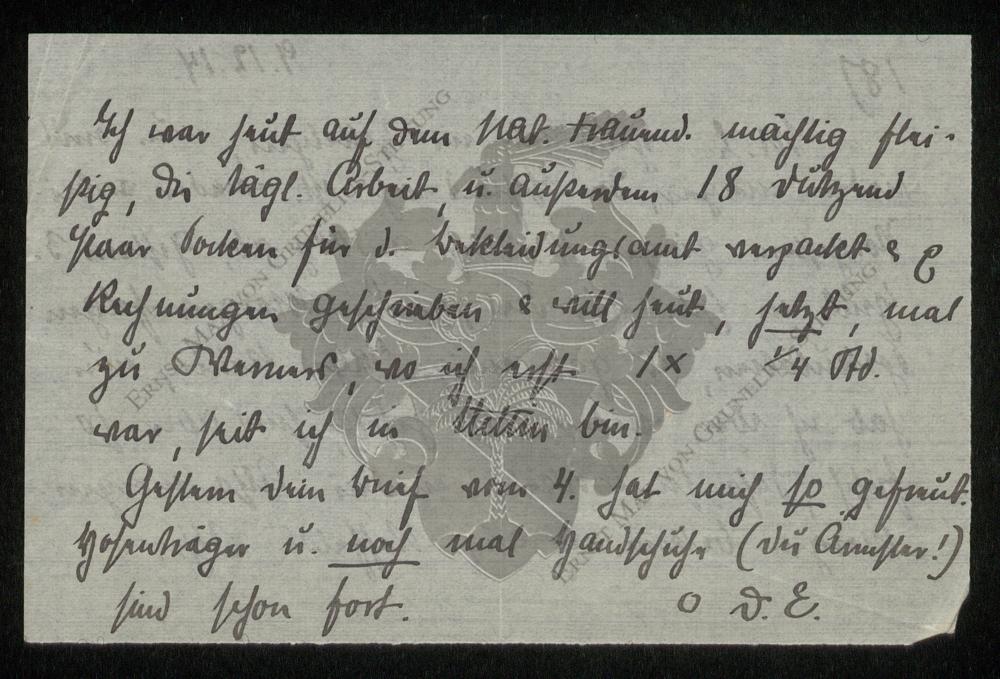 Ich war heut auf dem Nat. Frauend. mächtig flei-
ßig, die tägl. Arbeit, u. außerdem 18 Dutzend
Paar Socken für d. Bekleidungsamt verpackt &
Rechnungen geschrieben & will heut, jetzt, mal
zu Werners, wo ich erst 1x 1/4 Std.
war, seit ich in Stettin bin.
Gestern Dein Brief vom 4. hat mich so gefreut.
Hosenträger u. noch mal Handschuhe (Du Ärmster!)
sind schon fort. o D. E.